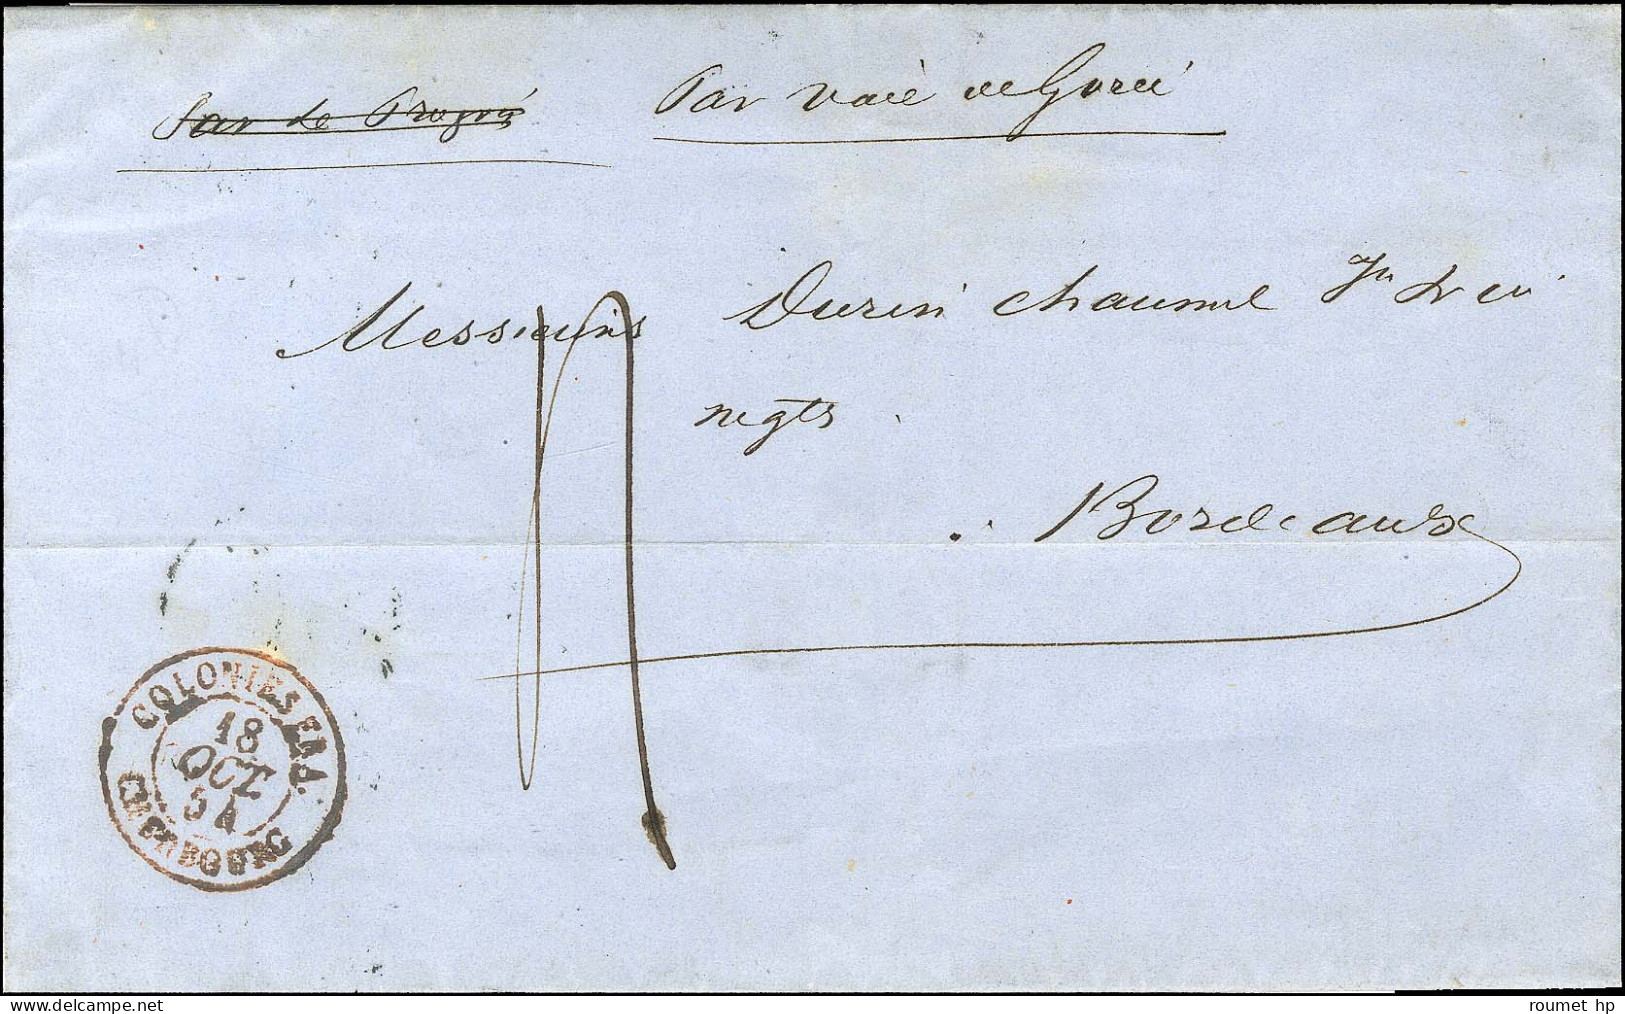 Par le Progrès Par voie de Gorée
Messieurs Durin Chaumel Jn &
negts
Bordeaux
COLONIES FRA.
18
OCT
54
CHERBOURG
www.delcampe.net
roumet hp